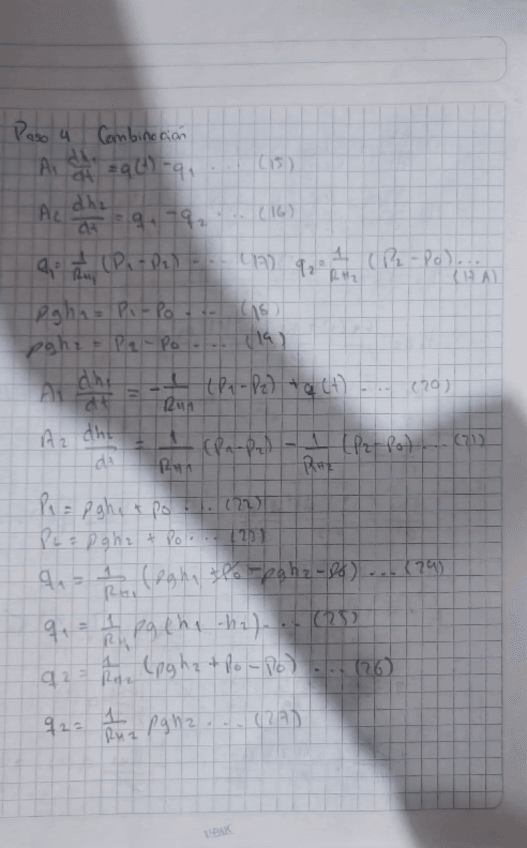 Paso 4 Combinación
A₁ dh₁/dt = q(t) - q₁ ... (15)
A₂ dh₂/dt = q₁ - q₂ ... (16)
q₁ = 1/R_H1 (P₁ - P₂) ... (17) q₂ = 1/R_H2 (P₂ - P₀) ... (17 A)
ρgh₁ = P₁ - P₀ ... (18)
ρgh₂ = P₂ - P₀ ... (19)
A₁ dh₁/dt = -1/R_H1 (P₁ - P₂) + q(t) ... (20)
A₂ dh₂/dt = 1/R_H1 (P₁ - P₂) - 1/R_H2 (P₂ - P₀) ... (21)
P₁ = ρgh₁ + P₀ ... (22)
P₂ = ρgh₂ + P₀ ... (23)
q₁ = 1/R_H1 (ρgh₁ + P₀ - ρgh₂ - P₀) ... (24)
q₁ = 1/R_H1 ρg(h₁ - h₂) ... (25)
q₂ = 1/R_H2 (ρgh₂ + P₀ - P₀) ... (26)
q₂ = 1/R_H2 ρgh₂ ... (27)